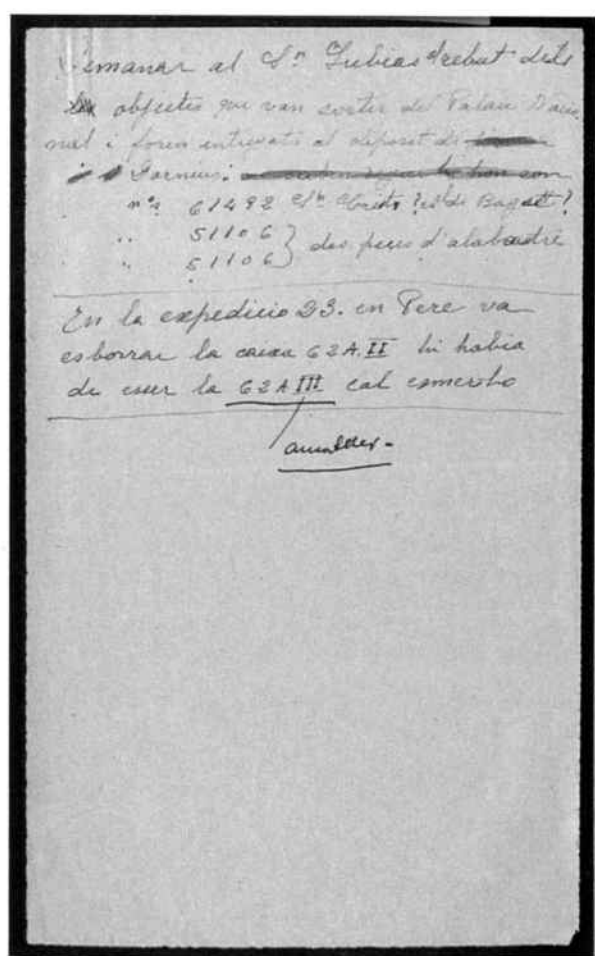 Demanar al Sr. Subias rebut dels
objectes que van sortir del Palau Nacio
nal i foren entregats al deposit de
Garneus:
nos 61492 St. Crist del de Baget?
" 51106 } dos peces d'alabastre
" 51106
En la expedicio 23. en Pere va
esborrar la caixa 62A.II hi habia
de esser la 62A III cal esmerlo